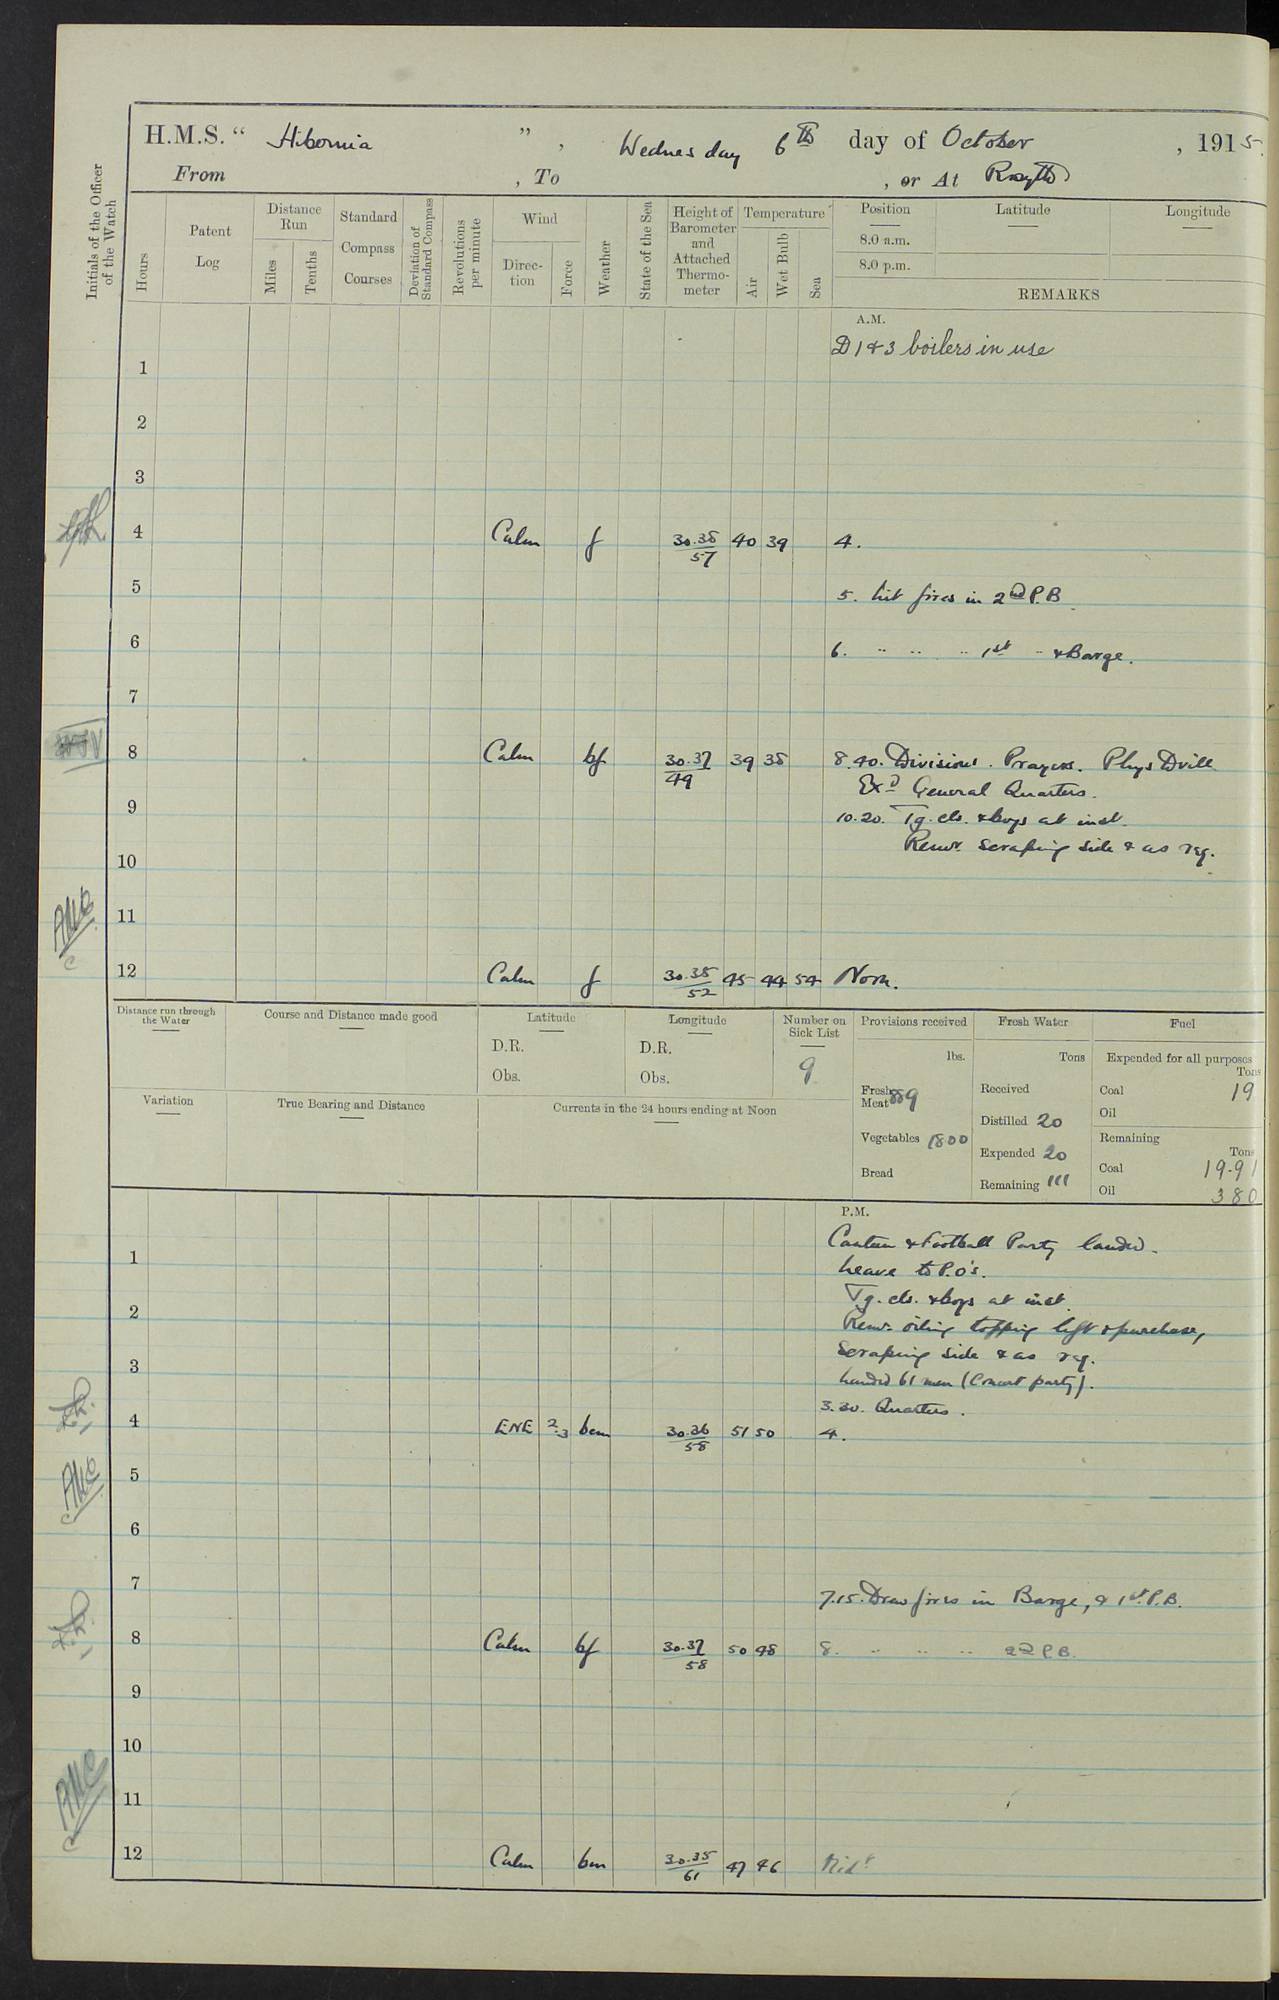 H.M.S. " Hibernia " , Wednesday 6th day of October , 1915.
From , To , or At Rosyth
Initials of the Officer of the Watch
Hours
Patent Log
Distance Run
Miles
Tenths
Standard Compass Courses
Deviation of Standard Compass
Revolutions per minute
Wind
Direction
Force
Weather
State of the Sea
Height of Barometer and Attached Thermometer
Temperature
Air
Wet Bulb
Sea
Position Latitude Longitude
8.0 a.m.
8.0 p.m.
REMARKS
A.M.
D 1 & 3 boilers in use
1
2
3
4 Calm f 30.38/57 40 39 4.
5 5. Lit fires in 2nd P.B.
6 6. " " " 1st " & Barge.
7
8 Calm bf 30.37/49 39 38 8.40. Divisions. Prayers. Phys Drill
Exd General Quarters.
9 10.20. Tg. cls. & boys at inst.
Remr. scraping side & as req.
10
11
AMC
12 Calm f 30.35/52 45 44 54 Noon.
Distance run through the Water
Course and Distance made good
Latitude
D.R.
Obs.
Longitude
D.R.
Obs.
Number on Sick List
9
Provisions received
lbs.
Fresh Meat 889
Vegetables 1800
Bread
Fresh Water
Tons
Received
Distilled 20
Expended 20
Remaining 111
Fuel
Expended for all purposes
Tons
Coal 19
Oil
Remaining
Tons
Coal 19-91
Oil 380
Variation
True Bearing and Distance
Currents in the 24 hours ending at Noon
P.M.
Canteen & Football Party landed.
1 Leave to P.O's.
Tg. cls. & boys at inst.
2 Remr. oiling topping lift & purchase,
scraping side & as req.
3 Landed 61 men (Concert party).
3.30. Quarters.
4 ENE 2.3 bcm 30.36/58 51 50 4.
5
AMC
6
7 7.15. Draw fires in Barge, & 1st P.B.
8 Calm bf 30.37/58 50 48 8. " " " 2nd P.B.
9
10
11
AMC
12 Calm bm 30.35/61 47 46 Midt